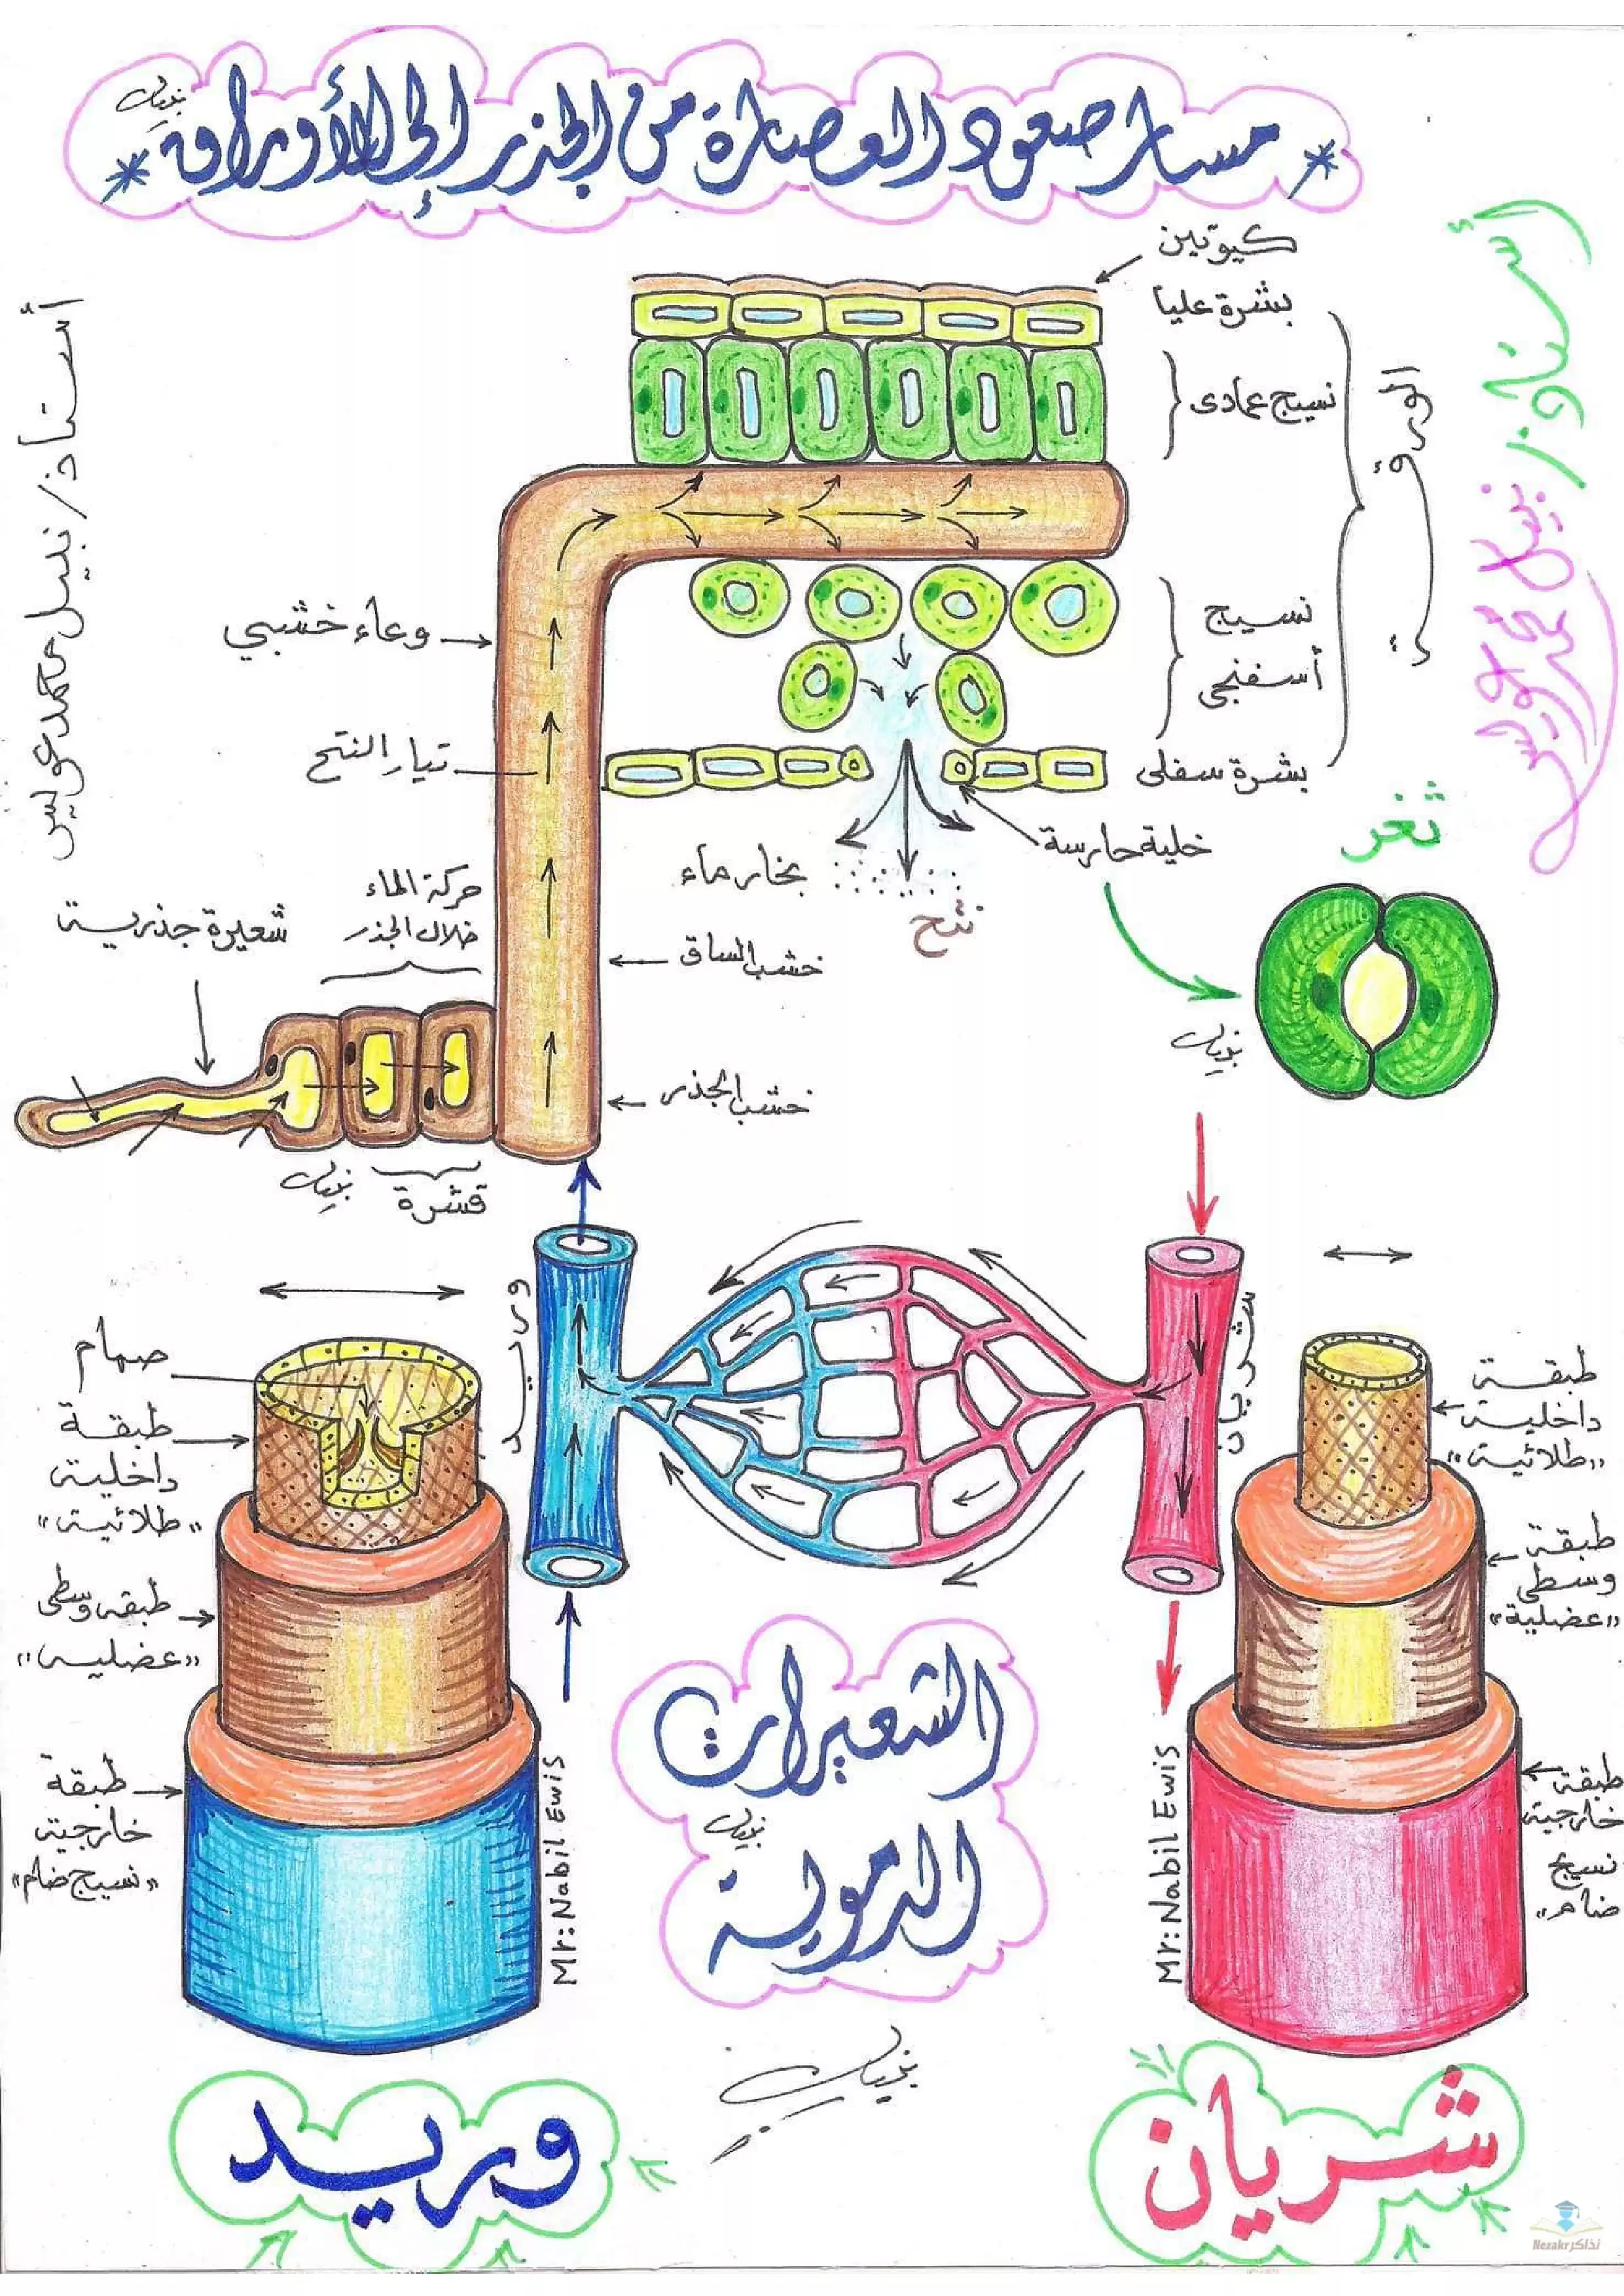 * مسار صعود العصارة من الجذر إلى الأوراق *
نبيل
أستاذ/ نبيل محمد عويس
أستاذ/ نبيل محمد عويس
كيوتين
بشرة عليا
نسيج عمادى
الورقة
نسيج
أسفنجى
بشرة سفلى
خلية حارسة
ثغر
نبيل
بخار ماء
نتح
وعاء خشبي
تيار النتح
حركة الماء
خلال الجذر
شعيرة جذرية
خشب الساق
خشب الجذر
قشرة
نبيل
وريد
شريان
صمام
طبقة
داخلية
"طلائية"
طبقة وسطى
"عضلية"
طبقة
خارجية
"نسيج ضام"
طبقة
داخلية
"طلائية"
طبقة
وسطى
"عضلية"
طبقة
خارجية
نسيج
ضام"
Mr: Nabil Ewis
Mr: Nabil Ewis
الشعيرات
نبيل
الدموية
نبيل
وريد
شريان
Nezakr نذاكر